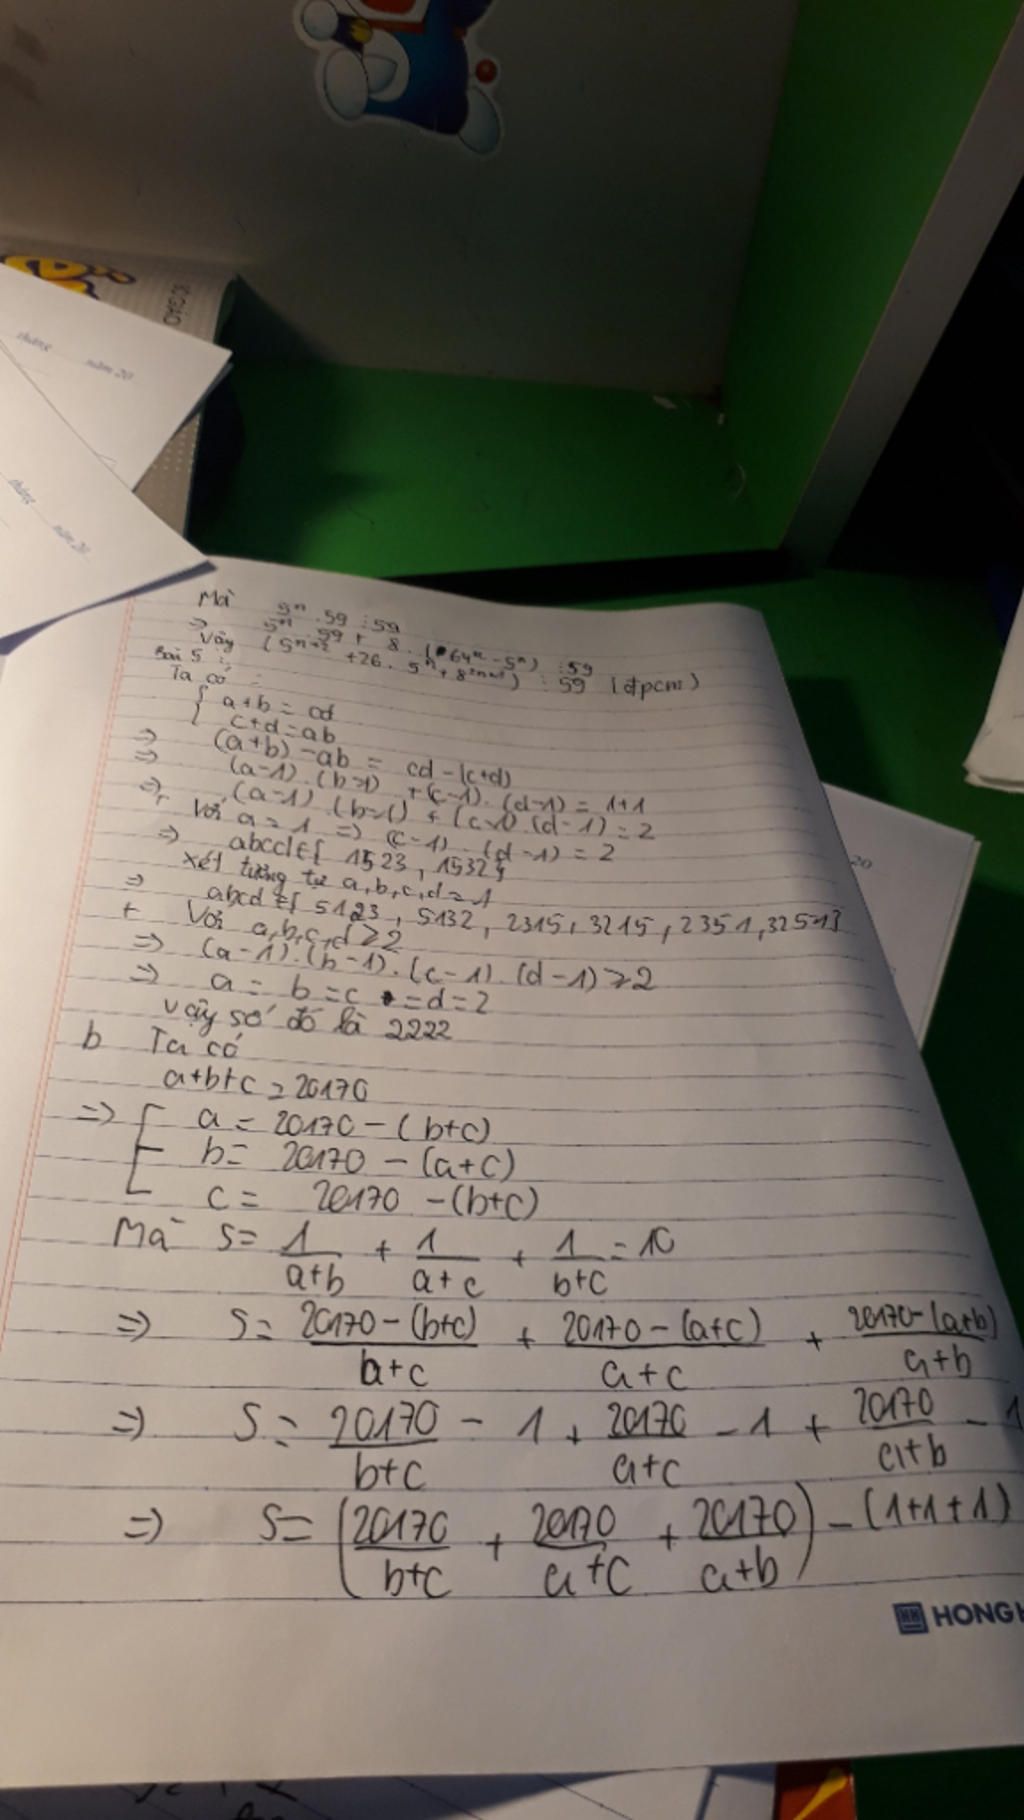 SỔ GIÁO
tháng năm 20
tháng năm 20
20
Mà 5ⁿ . 59 ⋮ 59
=> 5ⁿ . 59 + 8 . (64ⁿ - 5ⁿ) ⋮ 59
Vậy (5ⁿ⁺² + 26 . 5ⁿ + 8²ⁿ⁺¹) ⋮ 59 (đpcm)
Bài 5 :
Ta có :
{ a+b = cd
c+d = ab
=> (a+b) - ab = cd - (c+d)
=> (a-1) . (b-1) + (c-1) . (d-1) = 1+1
=> (a-1) . (b-1) + (c-1) . (d-1) = 2
+ Với a = 1 => (c-1) . (d-1) = 2
=> abcd ∈ { 1523 , 1532 }
xét tương tự a,b,c,d = 1
=> abcd ∈ { 5123 , 5132 , 2315 , 3215 , 2351 , 3251 }
+ Với a,b,c,d ≥ 2
=> (a-1) . (b-1) . (c-1) . (d-1) ≥ 2
=> a = b = c = d = 2
Vậy số đó là 2222
b Ta có
a+b+c = 20170
=> [ a = 20170 - (b+c)
b = 20170 - (a+c)
c = 20170 - (b+c)
Mà S = 1/(a+b) + 1/(a+c) + 1/(b+c) = 10
=> S = (20170 - (b+c))/(b+c) + (20170 - (a+c))/(a+c) + (20170 - (a+b))/(a+b)
=> S = 20170/(b+c) - 1 + 20170/(a+c) - 1 + 20170/(a+b) - 1
=> S = (20170/(b+c) + 20170/(a+c) + 20170/(a+b)) - (1+1+1)
HH HONG H